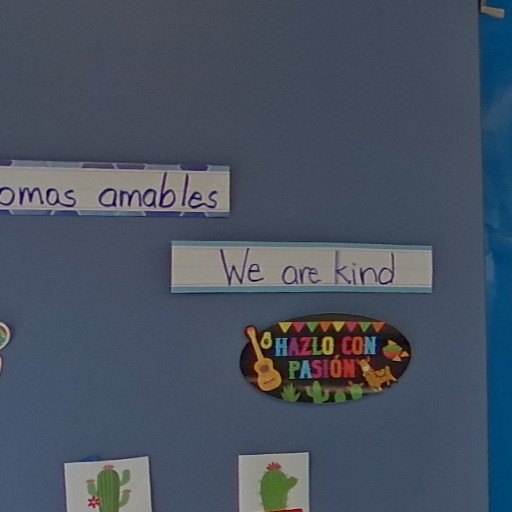 omos amables
We are kind
HAZLO CON
PASIÓN